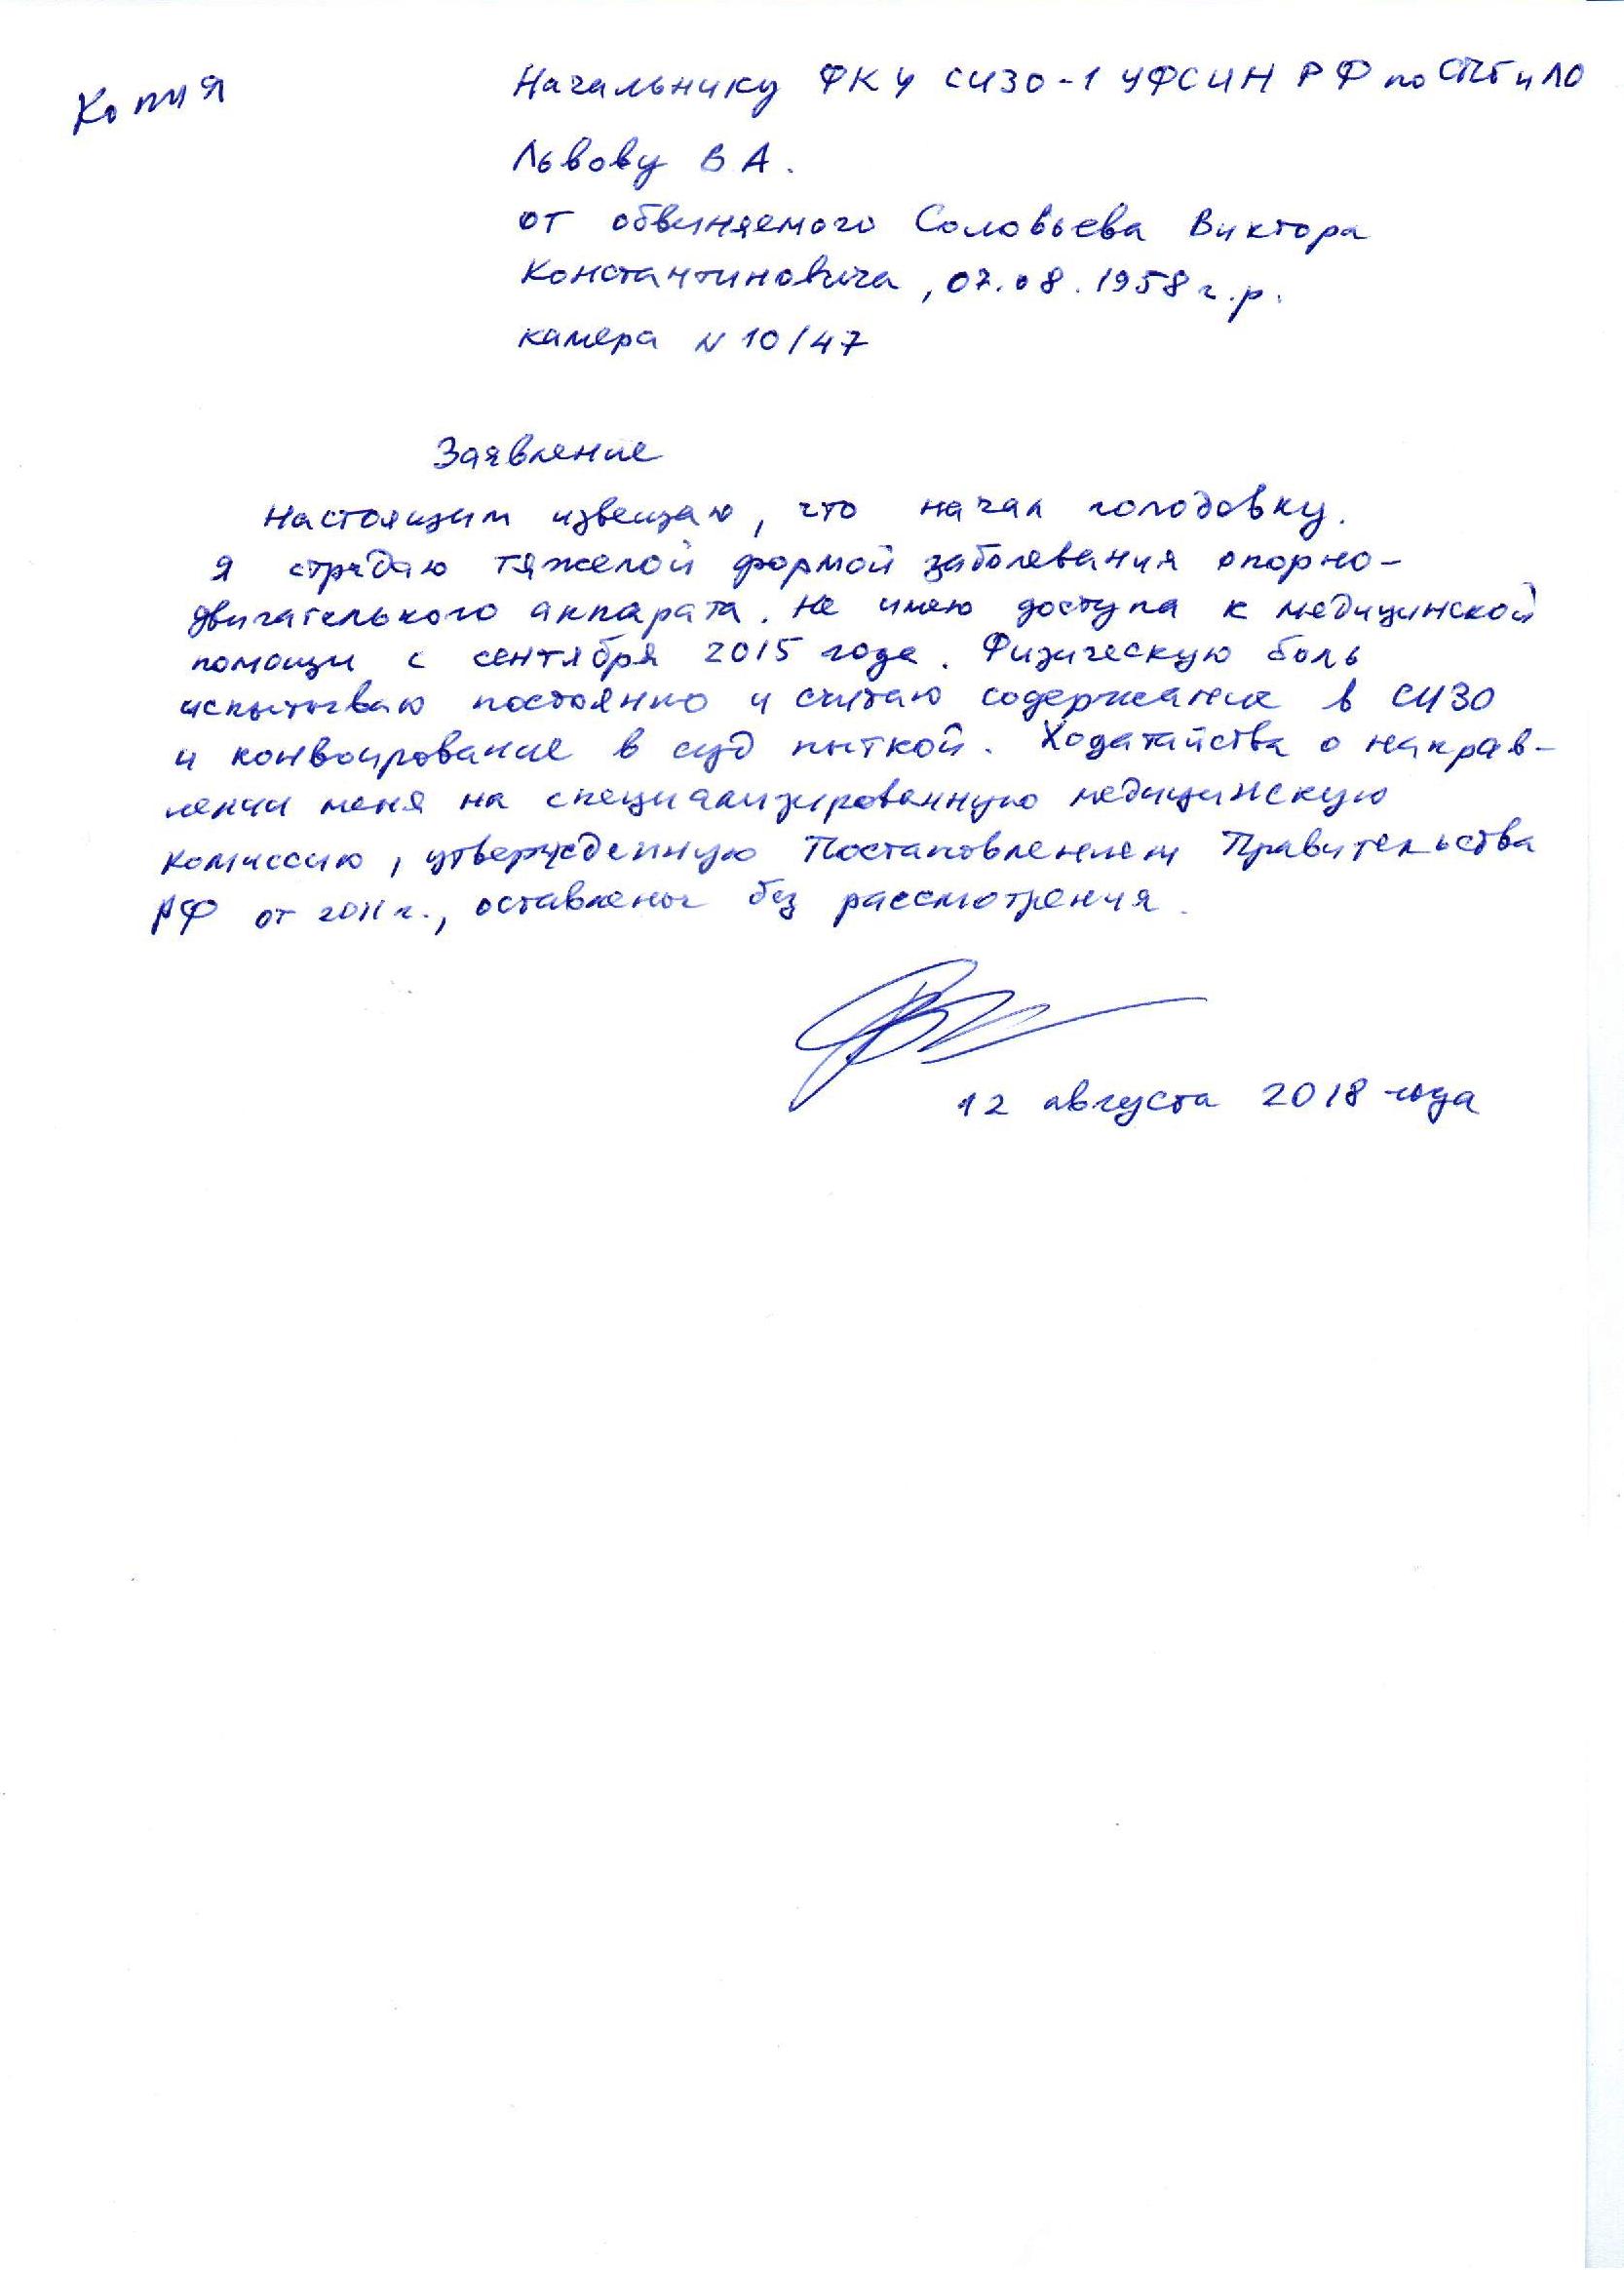 Копия
Начальнику ФКУ СИЗО-1 УФСИН РФ по СПб и ЛО
Львову В А.
от обвиняемого Соловьева Виктора
Константиновича, 07.08.1958 г.р.
камера N 10/47
Заявление
Настоящим извещаю, что начал голодовку.
Я страдаю тяжелой формой заболевания опорно-
двигательного аппарата. Не имею доступа к медицинской
помощи с сентября 2015 года. Физическую боль
испытываю постоянно и считаю содержание в СИЗО
и конвоирование в суд пыткой. Ходатайства о направ-
лении меня на специализированную медицинскую
комиссию, утвержденную Постановлением Правительства
РФ от 2011 г., оставлены без рассмотрения.
12 августа 2018 года